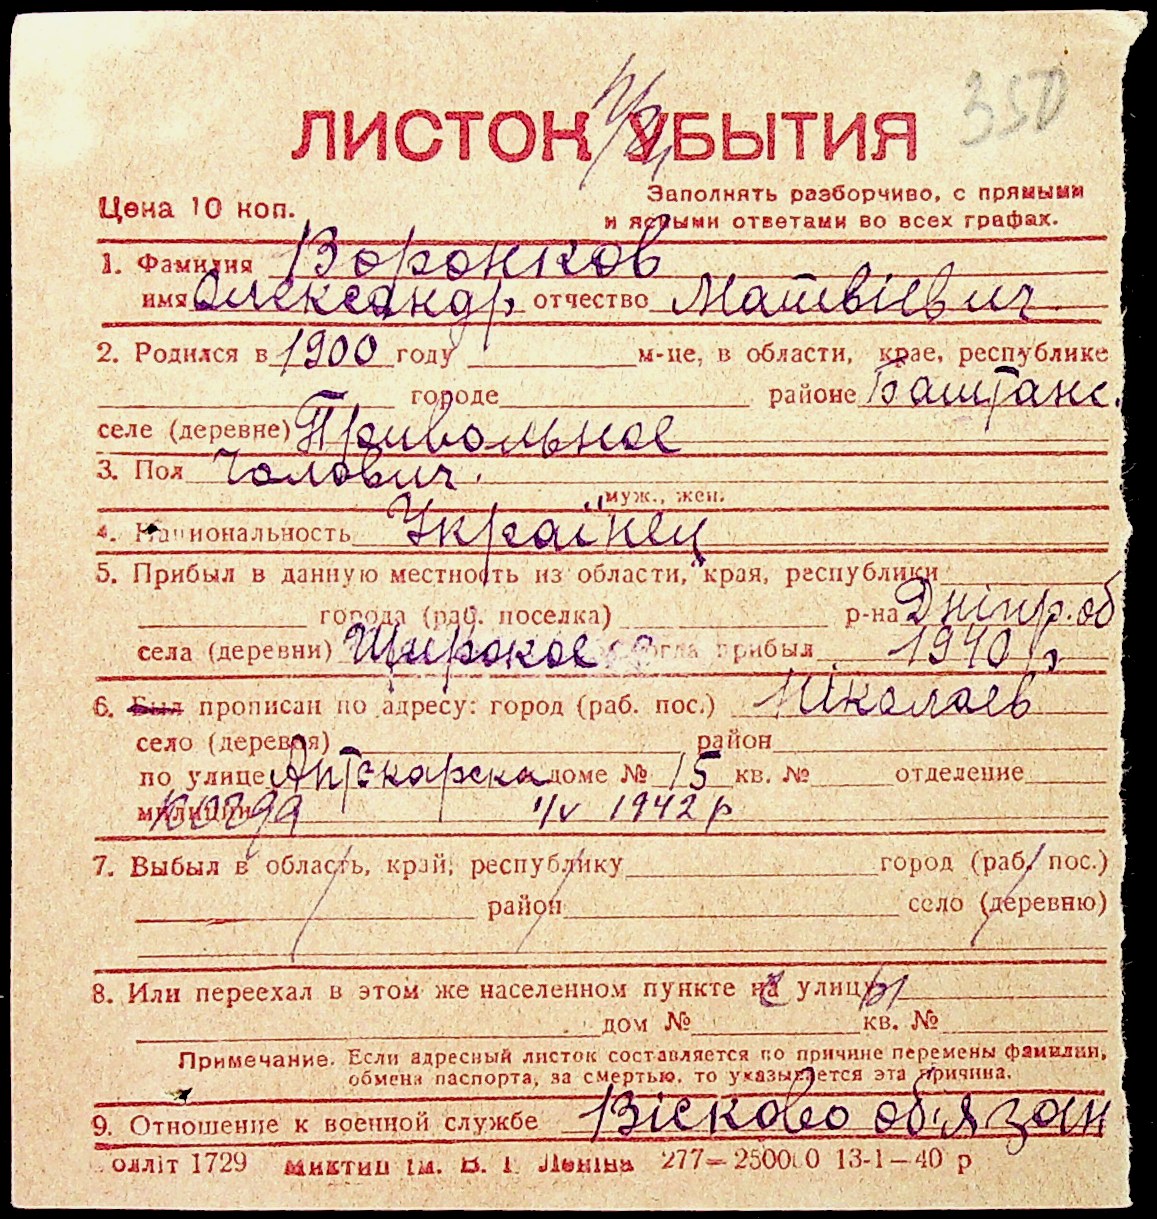 350
ЛИСТОК УБЫТИЯ
Цена 10 коп.
Заполнять разборчиво, с прямыми
и ясными ответами во всех графах.
1. Фамилия Воронков
имя Олександр отчество Матвіевич
2. Родился в 1900 году м-це, в области, крае, республике
городе районе Баштанс.
селе (деревне) Привольное
3. Пол Чолович.
муж., жен.
4. Национальность Українец
5. Прибыл в данную местность из области, края, республики
города (раб. поселка) р-на Дніпр. об
села (деревни) Широкое когда прибыл 1940 р.
6. Был прописан по адресу: город (раб. пос.) Ніколаев
село (деревня) район
по улице Аптекарска доме № 15 кв. № отделение
милиции когда 1/V 1942 р
7. Выбыл в область, край, республику город (раб. пос.)
район село (деревню)
8. Или переехал в этом же населенном пункте на улицу
дом № кв. №
Примечание. Если адресный листок составляется по причине перемены фамилии,
обмена паспорта, за смертью, то указывается эта причина.
9. Отношение к военной службе Вісково об'язан
олліт 1729 ім. В. І. Леніна 277—250000 13-1—40 р